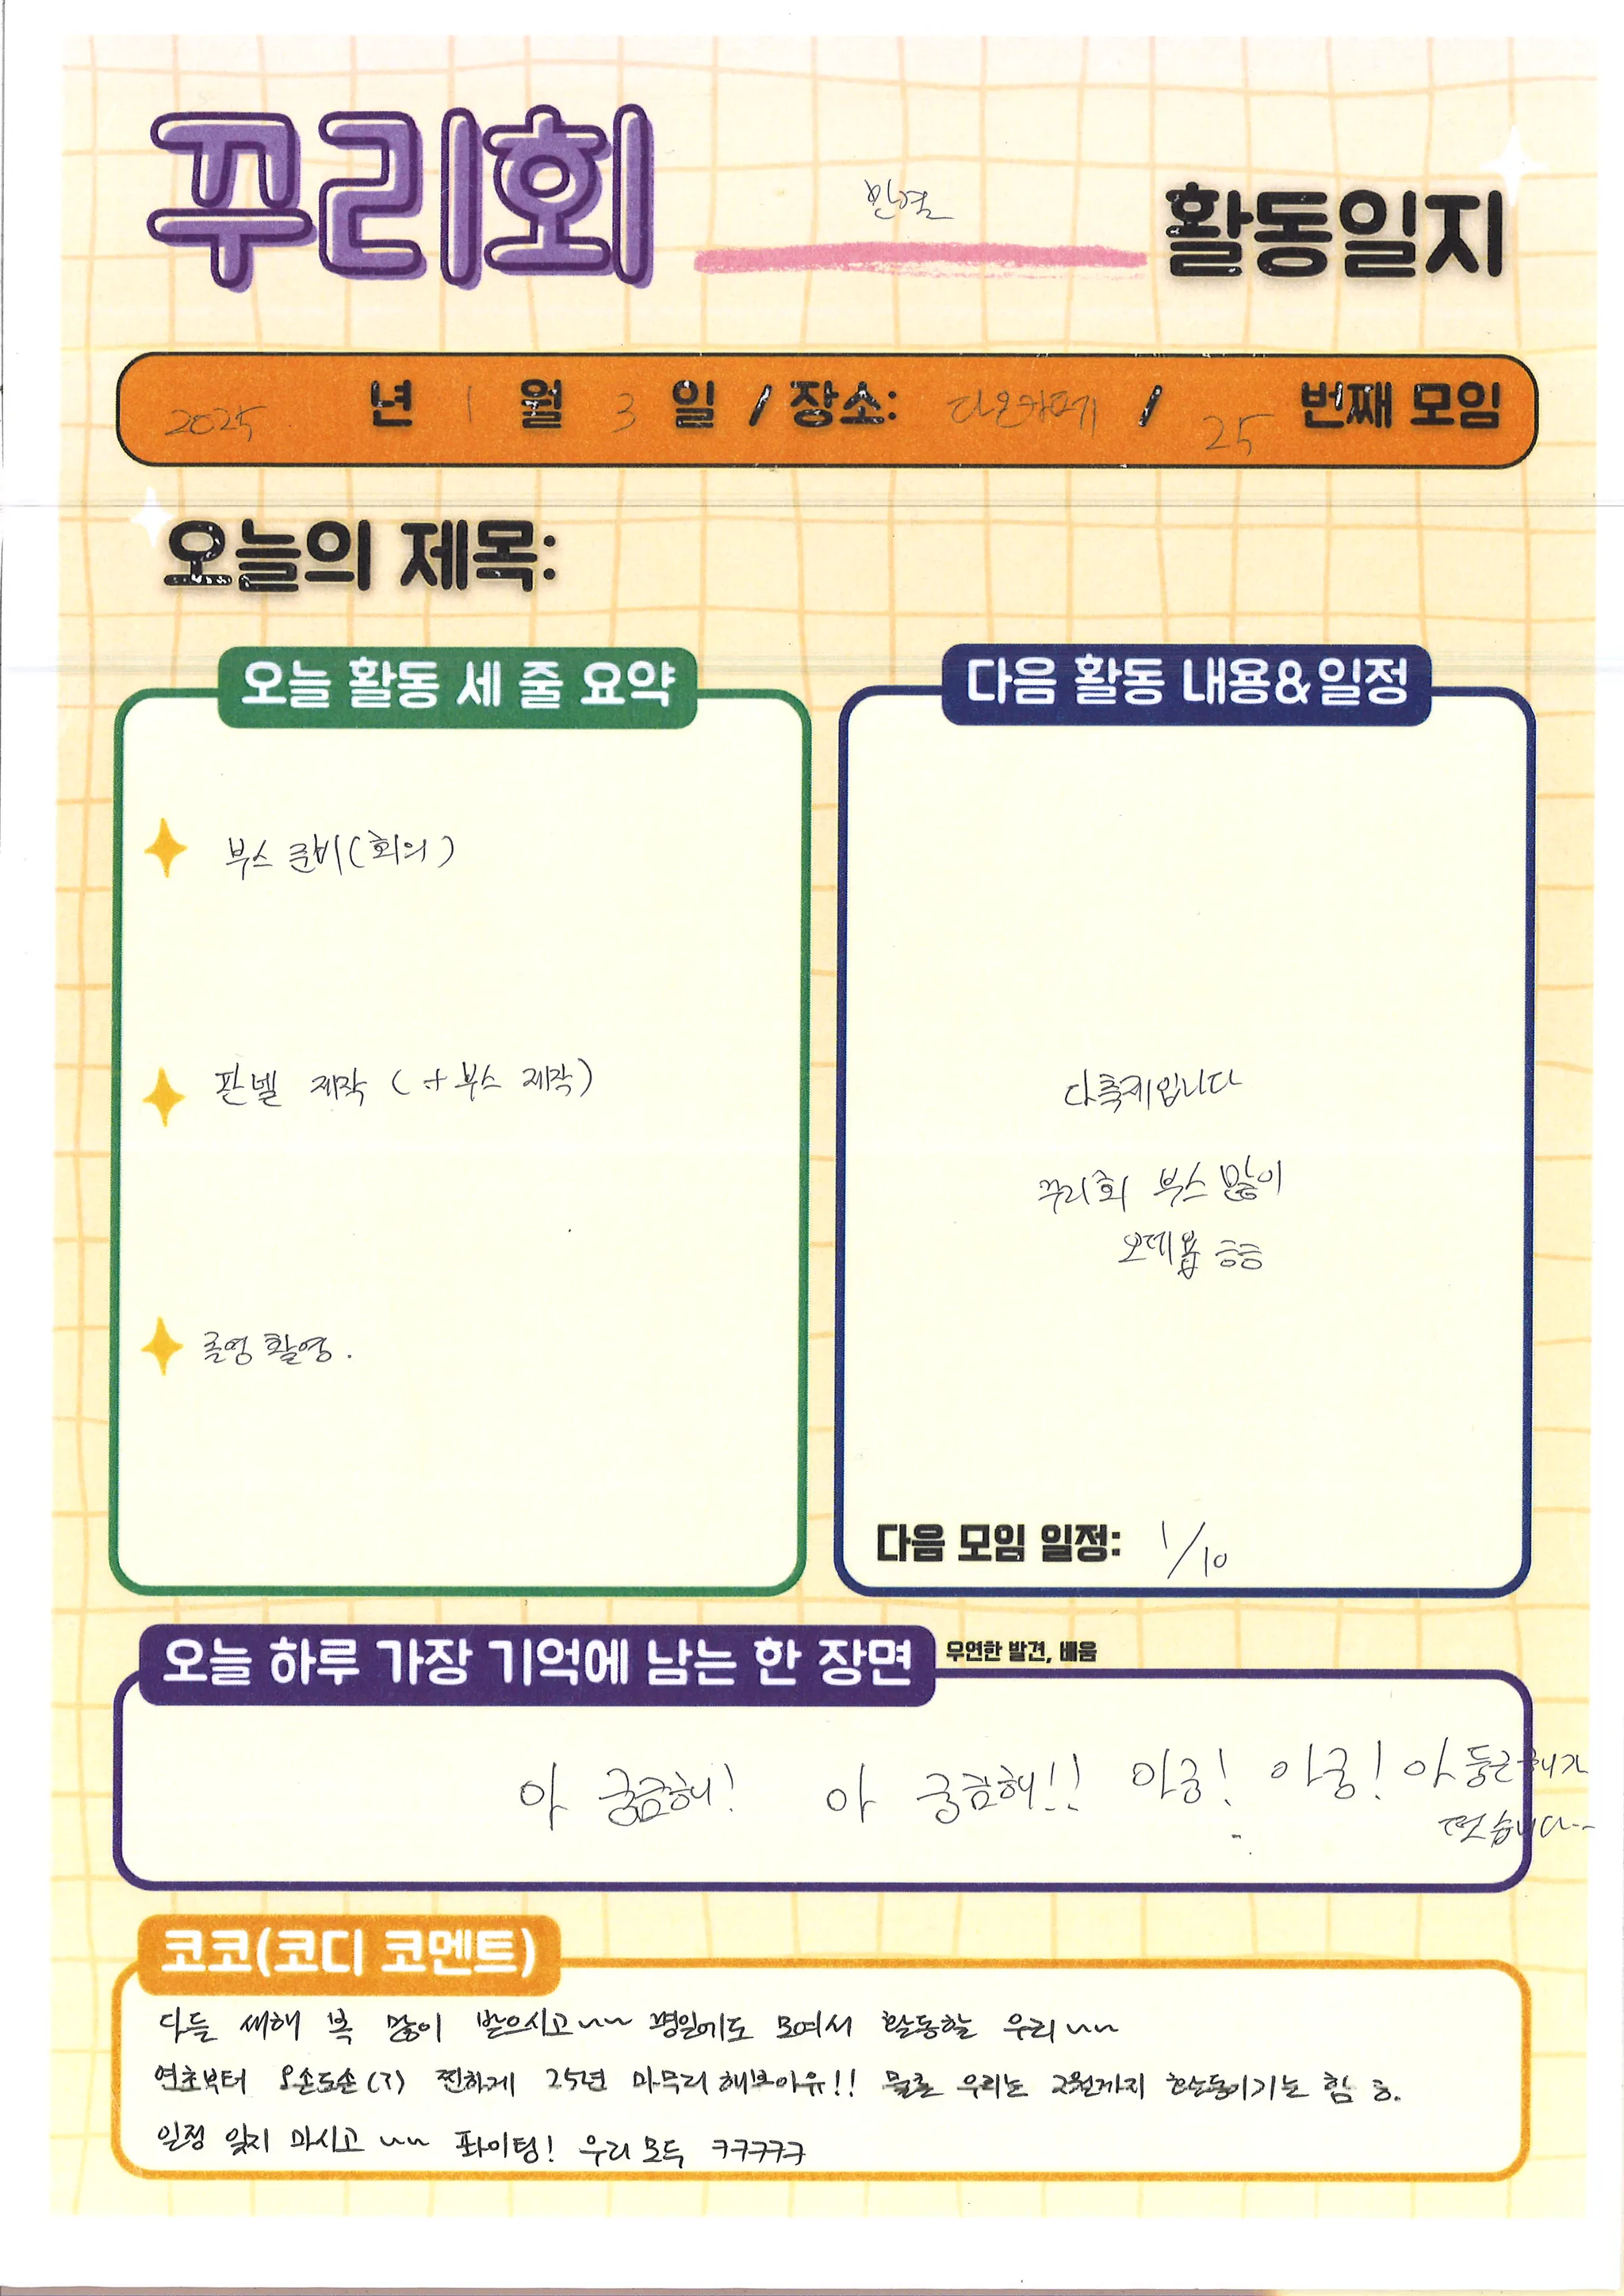 꾸리회 민열 활동일지
2025 년 1 월 3 일 / 장소: 다온카페 / 25 번째 모임
오늘의 제목:
오늘 활동 세 줄 요약
부스 준비(회의)
판넬 제작 (+부스 제작)
졸영 촬영.
다음 활동 내용&일정
다축제입니다
꾸리회 부스 많이
오데욥 흐흐
다음 모임 일정: 1/10
오늘 하루 가장 기억에 남는 한 장면 우연한 발견, 배움
아 궁금해! 아 궁금해!! 아궁! 아궁! 아 둥근해가
떴습니다--
코코(코디 코멘트)
다들 새해 복 많이 받으시고~~ 평일에도 모여서 활동할 우리~~
연초부터 오손도손(?) 찐하게 25년 마무리해보아유!! 물론 우리는 2월까지 활동이기는 함 흐.
일정 잊지 마시고 ~~ 파이팅! 우리 모두 ㅋㅋㅋㅋㅋ